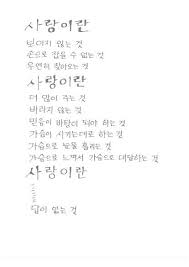 사랑이란
보이지 않는 것
손으로 잡을 수 없는 것
우연히 찾아오는 것
사랑이란
더 많이 주는 것
바라지 않는 것
믿음이 바탕이 되야 하는 것
가슴이 시키는데로 하는 것
가슴으로 눈물 흘리는 것
가슴으로 느껴서 가슴으로 대답하는 것
사랑이란
답이 없는 것